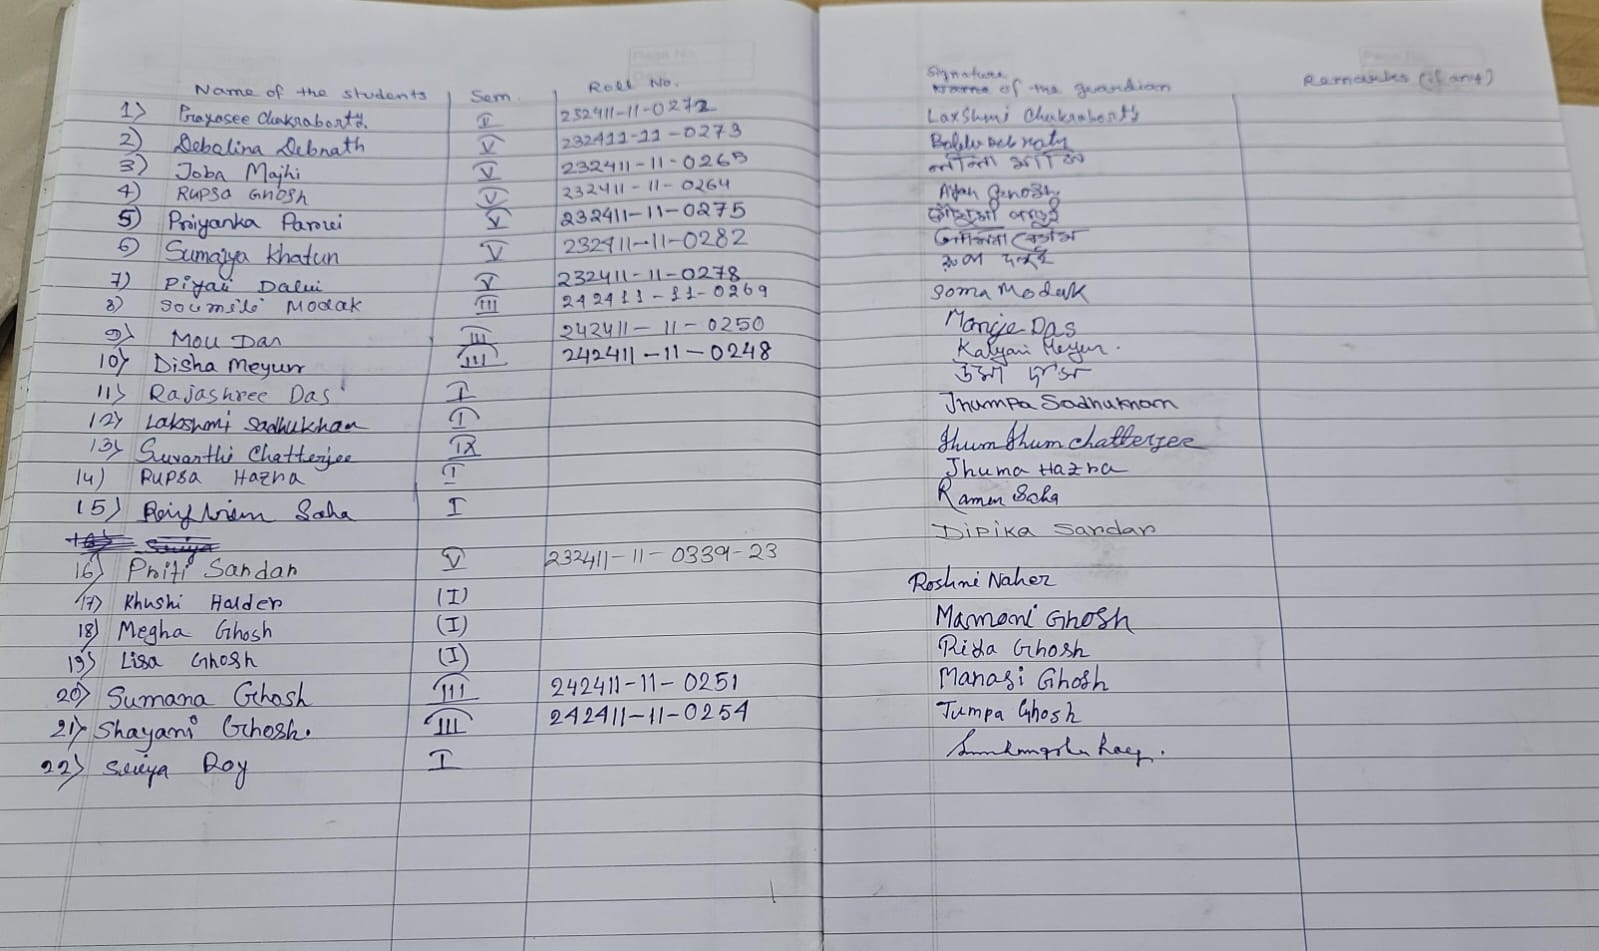 Name of the students Sem. Roll No. Signature of the guardian Remarks (if any)
1) Prayasee Chakraborty. I 232411-11-0272 Laxshmi Chakraborty
2) Debalina Debnath V 232411-11-0273
3) Joba Majhi V 232411-11-0265
4) Rupsa Ghosh V 232411-11-0264 Ghosh
5) Priyanka Parui V 232411-11-0275
6) Sumaiya Khatun V 232411-11-0282
7) Piyali Dalui V 232411-11-0278
8) Soumili Modak III 242411-11-0269 Soma Modak
9) Mou Das III 242411-11-0250 Das
10) Disha Meyur III 242411-11-0248 Kalyani Meyur.
11) Rajashree Das I উমা দাস
12) Lakshmi Sadhukhan I Jhumpa Sadhukhan
13) Chatterjee IX Jhum Jhum chatterjee
14) Rupsa Hazra I Jhuma Hazra
15) Saha I Ramen Saha
16) Priti Sardar V 232411-11-0339-23 Dipika Sardar
17) Khushi Halder (I) Roshni Naher
18) Megha Ghosh (I) Mamoni Ghosh
19) Lisa Ghosh (I) Rita Ghosh
20) Sumana Ghosh III 242411-11-0251 Manasi Ghosh
21) Shayani Ghosh. III 242411-11-0254 Tumpa Ghosh
22) Roy I